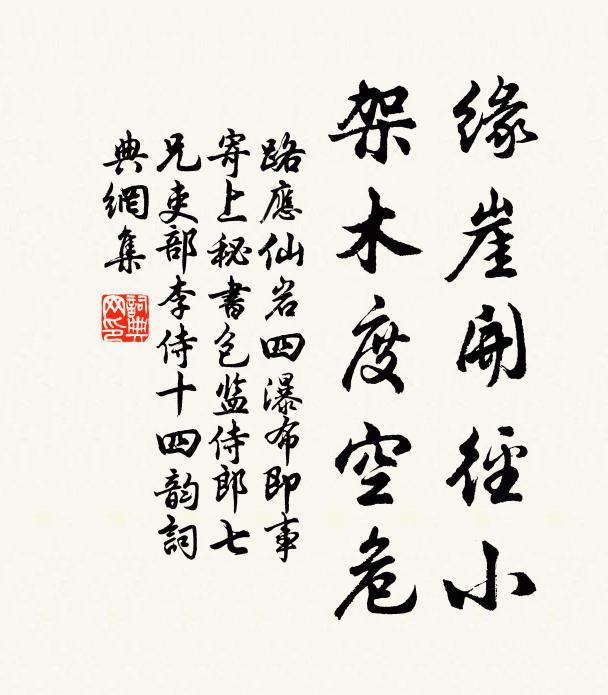 緣崖開徑小
架木度空危
路應仙岩四瀑布即事
寄上秘書包監侍郎七
兄吏部李侍十四韵詞
典網集
詞典网印